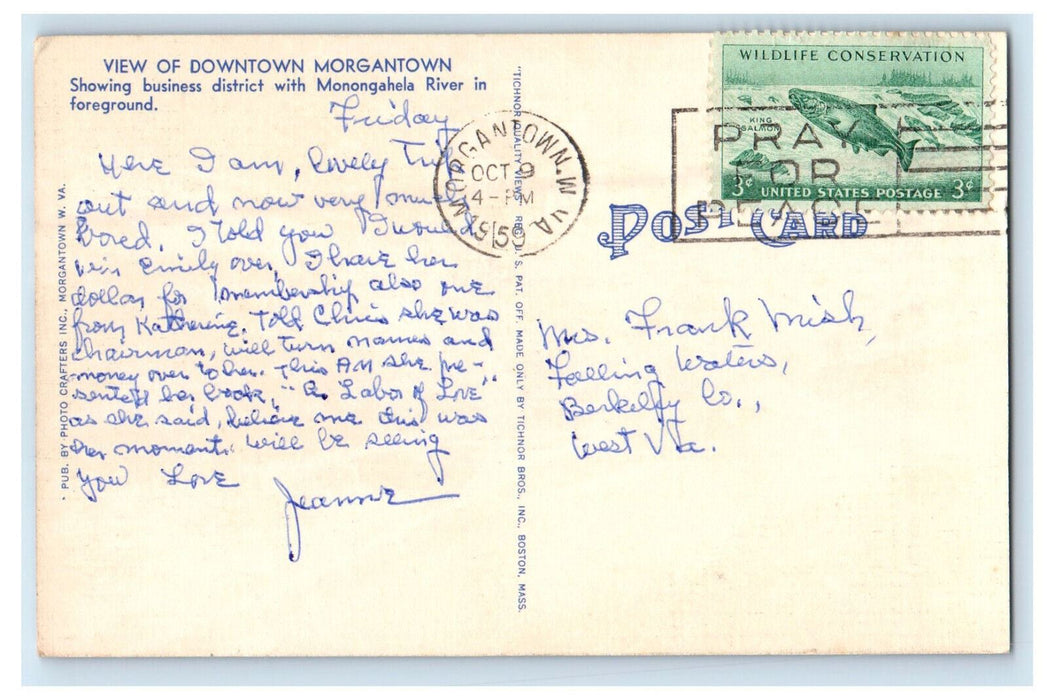 VIEW OF DOWNTOWN MORGANTOWN
Showing business district with Monongahela River in
foreground.
Friday
Here I am, lovely Trip
out and now very much
bored. I told you I would
win Emily over, I have her
dollar for membership also one
from Katherine. Told Chris she was
chairman, will turn names and
money over to her. This AM she pre-
sented her book, "A Labor of Love"
as she said, believe me this was
her moment. Will be seeing
you Love
Jeanne
PUB. BY PHOTO CRAFTERS INC., MORGANTOWN W. VA.
"TICHNOR QUALITY VIEWS," REG. U. S. PAT. OFF. MADE ONLY BY TICHNOR BROS., INC., BOSTON, MASS.
MORGANTOWN. W. VA.
OCT 9
4-PM
WILDLIFE CONSERVATION
KING
SALMON
3¢ UNITED STATES POSTAGE 3¢
PRAY
FOR
PEACE
POST CARD
Mrs. Frank Mish,
Falling Waters,
Berkeley Co.,
West Va.